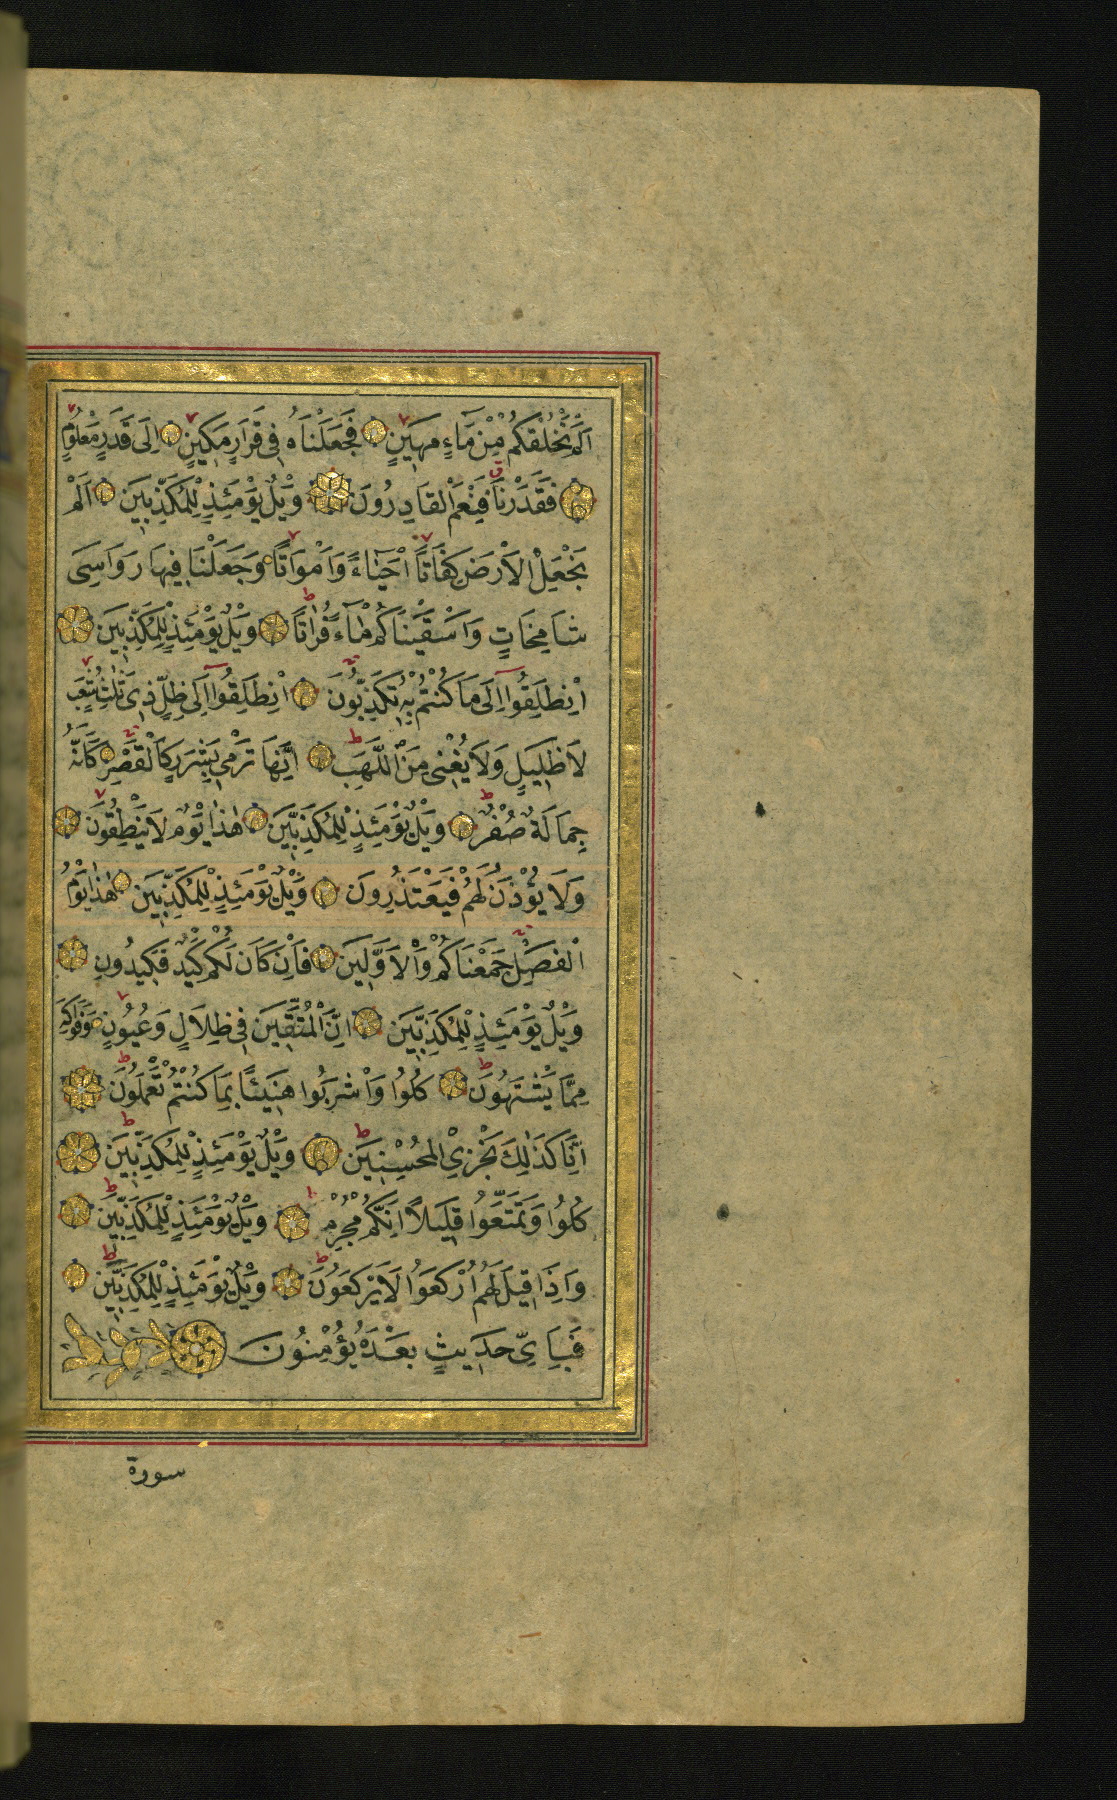 اَلَمْ نَخْلُقْكُمْ مِنْ مَٓاءٍ مَهِينٍ فَجَعَلْنَاهُ فِي قَرَارٍ مَكِينٍ اِلَى قَدَرٍ مَعْلُومٍ
فَقَدَرْنَا فَنِعْمَ الْقَادِرُونَ وَيْلٌ يَوْمَئِذٍ لِلْمُكَذِّبِينَ اَلَمْ
نَجْعَلِ الْاَرْضَ كِفَاتًا اَحْيَٓاءً وَاَمْوَاتًا وَجَعَلْنَا فِيهَا رَوَاسِيَ
شَامِخَاتٍ وَاَسْقَيْنَاكُمْ مَٓاءً فُرَاتًا وَيْلٌ يَوْمَئِذٍ لِلْمُكَذِّبِينَ
اِنْطَلِقُٓوا اِلَى مَا كُنْتُمْ بِهِ تُكَذِّبُونَ اِنْطَلِقُٓوا اِلَى ظِلٍّ ذِي ثَلٰثِ شُعَبٍ
لَا ظَلِيلٍ وَلَا يُغْنِي مِنَ اللَّهَبِ اِنَّهَا تَرْمِي بِشَرَرٍ كَالْقَصْرِ كَاَنَّهُ
جِمَالَةٌ صُفْرٌ وَيْلٌ يَوْمَئِذٍ لِلْمُكَذِّبِينَ هٰذَا يَوْمُ لَا يَنْطِقُونَ
وَلَا يُؤْذَنُ لَهُمْ فَيَعْتَذِرُونَ وَيْلٌ يَوْمَئِذٍ لِلْمُكَذِّبِينَ هٰذَا يَوْمُ
الْفَصْلِ جَمَعْنَاكُمْ وَالْاَوَّلِينَ فَاِنْ كَانَ لَكُمْ كَيْدٌ فَكِيدُونِ
وَيْلٌ يَوْمَئِذٍ لِلْمُكَذِّبِينَ اِنَّ الْمُتَّقِينَ فِي ظِلَالٍ وَعُيُونٍ وَفَوَاكِهَ
مِمَّا يَشْتَهُونَ كُلُوا وَاشْرَبُوا هَنِيئًا بِمَا كُنْتُمْ تَعْمَلُونَ
اِنَّا كَذَلِكَ نَجْزِي الْمُحْسِنِينَ وَيْلٌ يَوْمَئِذٍ لِلْمُكَذِّبِينَ
كُلُوا وَتَمَتَّعُوا قَلِيلًا اِنَّكُمْ مُجْرِمُ وَيْلٌ يَوْمَئِذٍ لِلْمُكَذِّبِينَ
وَاِذَا قِيلَ لَهُمُ ارْكَعُوا لَا يَرْكَعُونَ وَيْلٌ يَوْمَئِذٍ لِلْمُكَذِّبِينَ
فَبِاَيِّ حَدِيثٍ بَعْدَهُ يُؤْمِنُونَ
سورة